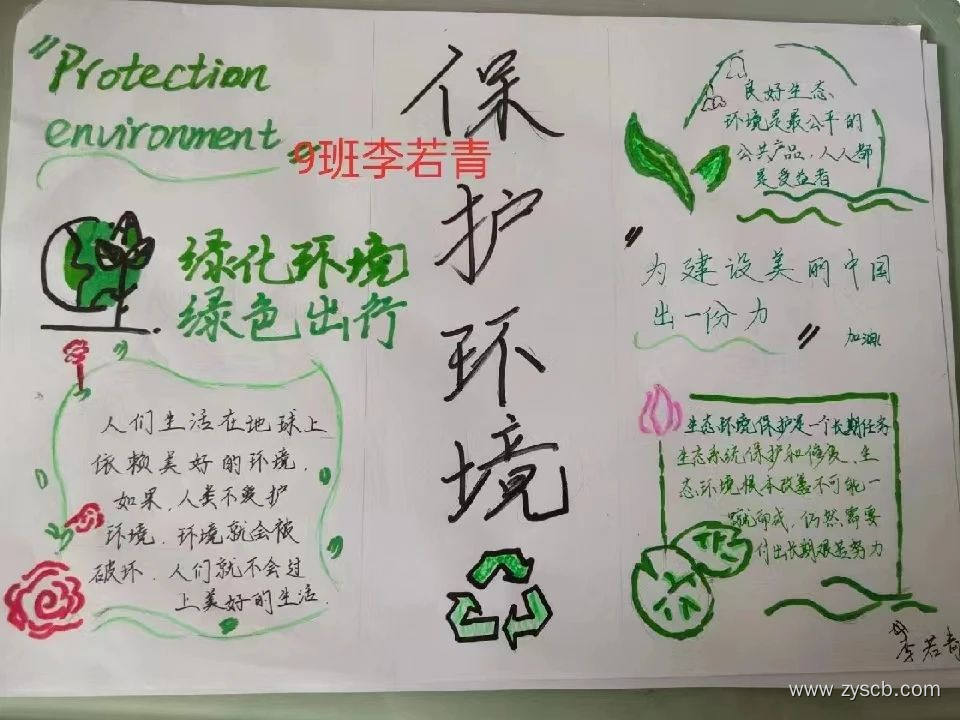 Protection
environment
9班李若青
绿化环境
绿色出行
人们生活在地球上
依赖美好的环境,
如果,人类不爱护
环境.环境就会被
破坏.人们就不会过
上美好的生活.
保
护
环
境
良好生态
环境是最公平的
公共产品,人人都
是受益者
为建设美丽中国
出一份力
加油
生态环境保护是一个长期任务
生态系统保护和修复、生
态环境根本改善不可能一
蹴而成,仍然需要
付出长期艰苦努力
李若青
www.zyscb.com